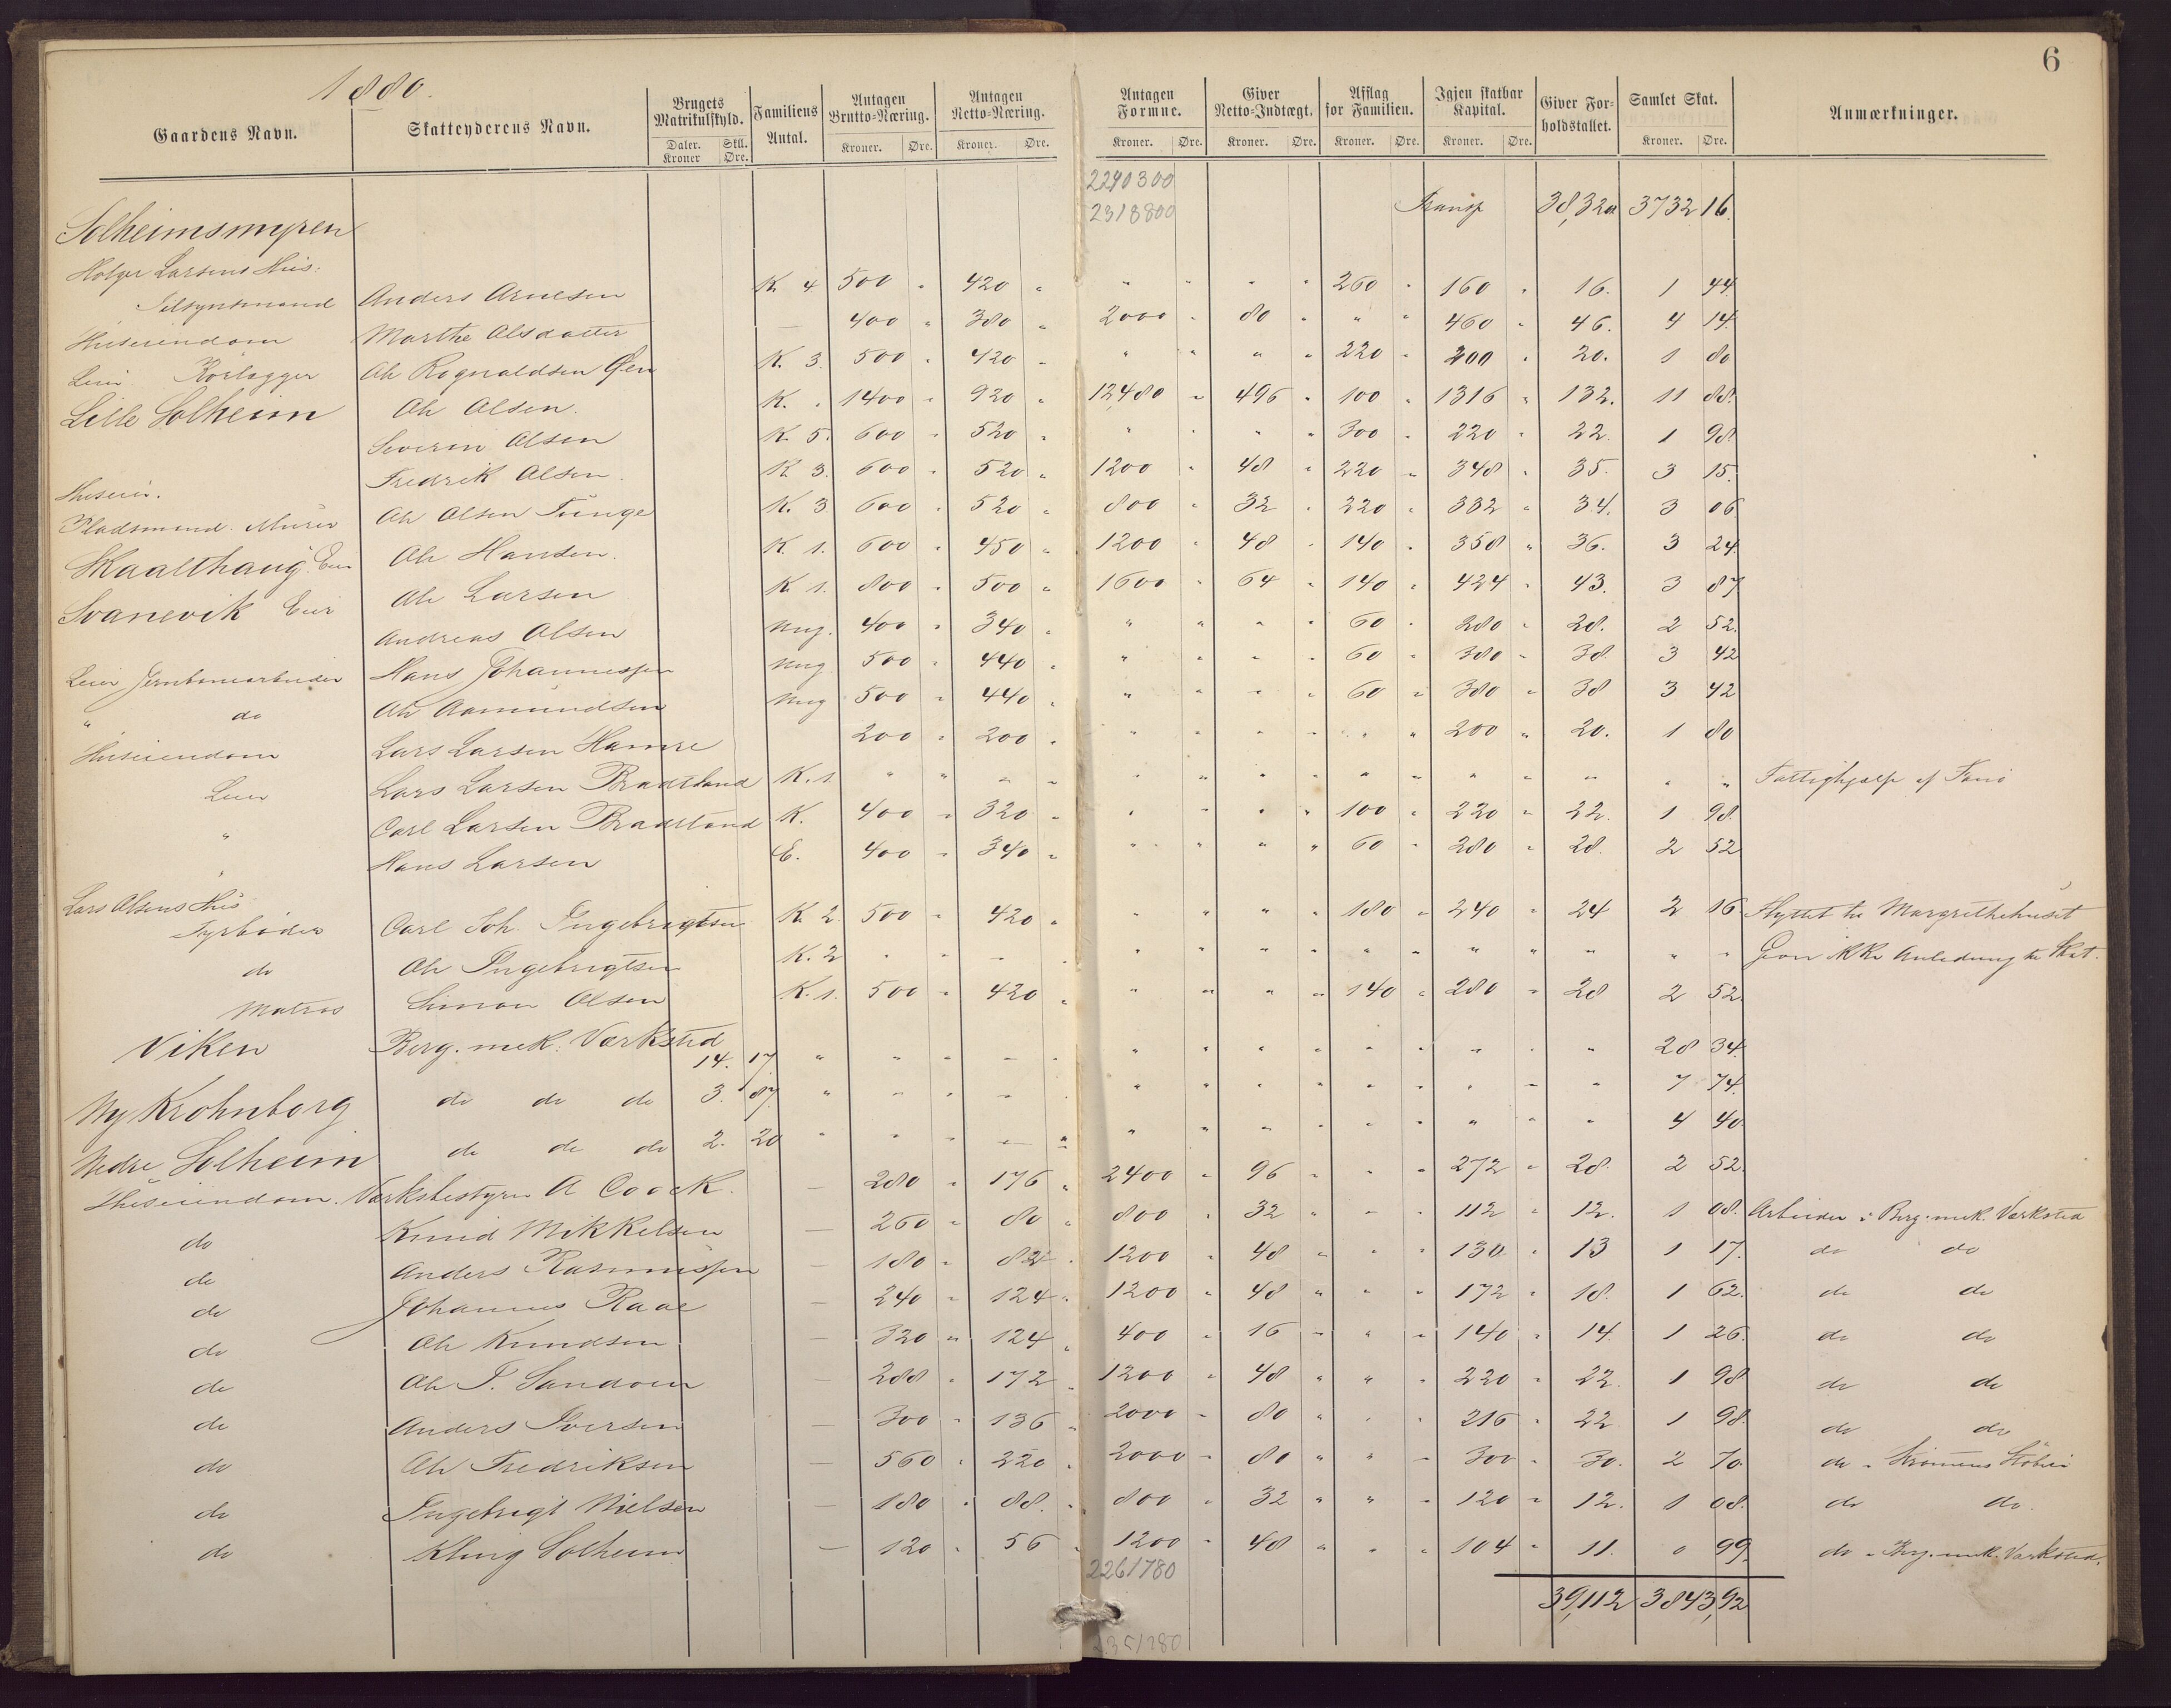 6
1880.
Gaardens Navn. Skatteyderens Navn. Brugets Matrikulskyld. Daler. Kroner Skll. Øre. Familiens Antal. Antagen Brutto-Næring. Kroner. Øre. Antagen Netto-Næring. Kroner. Øre. Antagen Formue. Kroner. Øre. Giver Netto-Indtægt. Kroner. Øre. Afslag for Familien. Kroner. Øre. Igjen skatbar Kapital. Kroner. Øre. Giver Forholdstallet. Samlet Skat. Kroner. Øre. Anmærkninger.
2240300
Solheimsmyren 2318800 Transp 3732 16.
Holger Larsens Hus.
Tilsynsmand Anders Arnesen K 4 500 " 420 " " " " " 260 " 160 " 16. 1 44
Huseiendom Marthe Olsdatter — 400 " 380 " 2000 " 80 " " " 460 " 46. 4 14
Leier Ole Rognaldsen K. 3. 500 " 420 " " " " " 220 " 200 " 20. 1 80
Lille Solheim Ole Olsen. K. " 1400 " 920 " 12480 " 496 " 100 " 1316 " 132. 11 88.
Severin Olsen K. 5. 600 " 520 " " " " " 300 " 220 " 22. 1 98
Fredrik Olsen. K 3. 600 " 520 " 1200 " 48 " 220 " 348 " 35. 3 15.
Huseier. Ole Olsen Tunge K. 3 600 " 520 " 800 " 32 " 220 " 332 " 34. 3 06
Pladsmand. Murer Ole Hansen. K 1. 600 " 450 " 1200 " 48 " 140 " 358 " 36. 3 24
Skaalthaug Eier Ole Larsen K 1. 800 " 500 " 1600 " 64 " 140 " 424 " 43. 3 87
Svanevik Eier Andreas Olsen Ung. 400 " 340 " " " " " 60 " 280 " 28. 2 52.
Leier Jernbanearbeider Hans Johannessen Ung 500 " 440 " " " " " 60 " 380 " 38. 3 42
" do Ole Aamundsen Ung 500 " 440 " " " " " 60 " 380 " 38 3 42
Huseiendom Lars Larsen Hamre 200 " 200 " " " " " " " 200 " 20. 1 80
Leier Lars Larsen Bradtland K. 1 " " " " " " " " " " " " " " " Fattighjælp af Fane
" Carl Larsen Bradtland K. 400 " 320 " " " " " 100 " 220 " 22. 1 98.
" Hans Larsen E. 400 " 340 " " " " " 60 " 280 " 28. 2 52
Lars Olsens Hus
Fyrbøder Carl Joh. Ingebrigtsen K. 2 500 " 420 " " " " " 180 " 240 " 24 2 16 Flyttet til Margrethehuset
do Ole Ingebrigtsen K. 2 " " " " " " " " " " " " " " " Giver ikke Anledning til Skat.
Matros Simon Olsen K. 1. 500 " 420 " " " " " 140 " 280 " 28 2 52.
Viken Berg. mek. Værksted 14. 17. " " " — " " " " " " " " " " 28 34.
Ny Krohnborg do do do 3. 87. " " " — " " " " " " " " " " 7 74.
Nedre Solheim do do do 2. 20 " " " — " " " " " " " " " " 4 40.
Huseiendom. Værksbestyrer A Coock. — 280 " 176 " 2400 " 96 " " " 272 " 28. 2 52.
do Knud Mikkelsen — 260 " 80 " 800 " 32 " " " 112 " 12. 1 08. Arbeider i Berg. mek. Værksted
do Anders Rasmussen — 180 " 82 " 1200 " 48 " " " 130 " 13 1 17. do do
do Johannes Raae — 240 " 124 " 1200 " 48 " " " 172 " 18. 1 62. do do
do Ole Knudsen — 320 " 124 " 400 " 16 " " " 140 " 14. 1 26. do do
do Ole J. Sandven — 288 " 172 " 1200 " 48 " " " 220 " 22. 1 98 do do
do Anders Iversen — 300 " 136 " 2000 " 80 " " " 216 " 22 1 98. do do
do Ole Fredriksen — 560 " 220 " 2000 " 80 " " " 300 " 30. 2 70 do "
do Ingebrigt Nielsen — 180 " 88. " 800 " 32 " " " 120 " 12. 1 08. do do.
do Solheim — 120 " 56 " 1200 " 48 " " " 104 " 11. 0 99. do " Berg. mek. Værksted.
2261780
39,112 3843,92